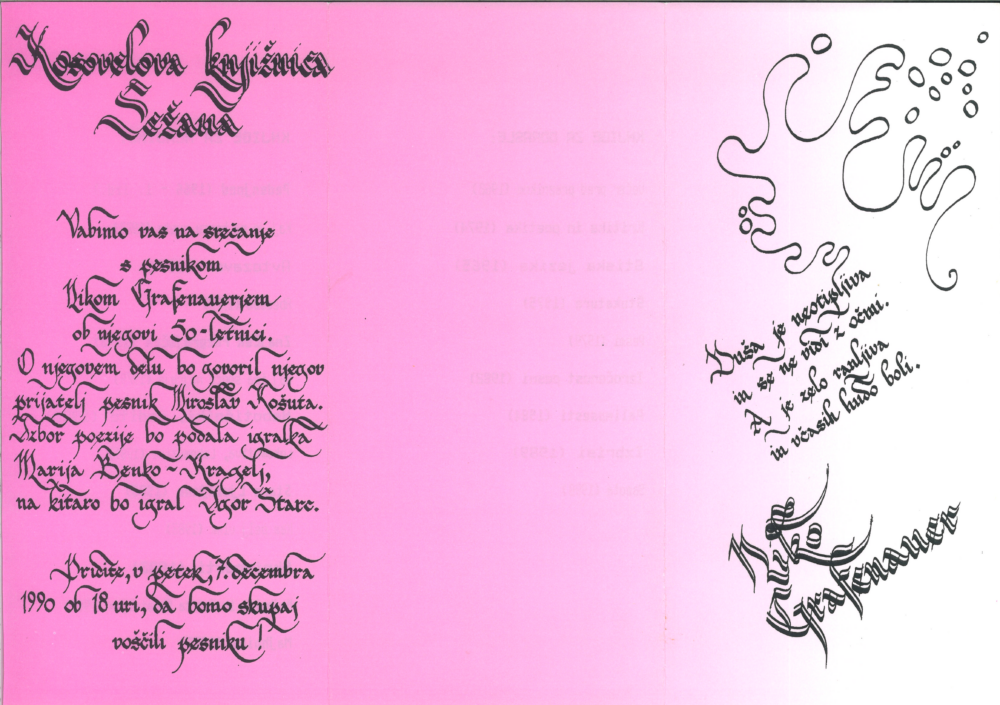 Kosovelova knjižnica
Sežana
Vabimo vas na srečanje
s pesnikom
Nikom Grafenauerjem
ob njegovi 50-letnici.
O njegovem delu bo govoril njegov
prijatelj pesnik Miroslav Košuta.
Izbor poezije bo podala igralka
Marija Benko-Kragelj,
na kitaro bo igral Igor Starc.
Pridite, v petek, 7. decembra
1990 ob 18 uri, da bomo skupaj
voščili pesniku!
Duša je neotipljiva
in se ne vidi z očmi.
A je zelo ranljiva
in včasih hudo boli.
Niko
Grafenauer